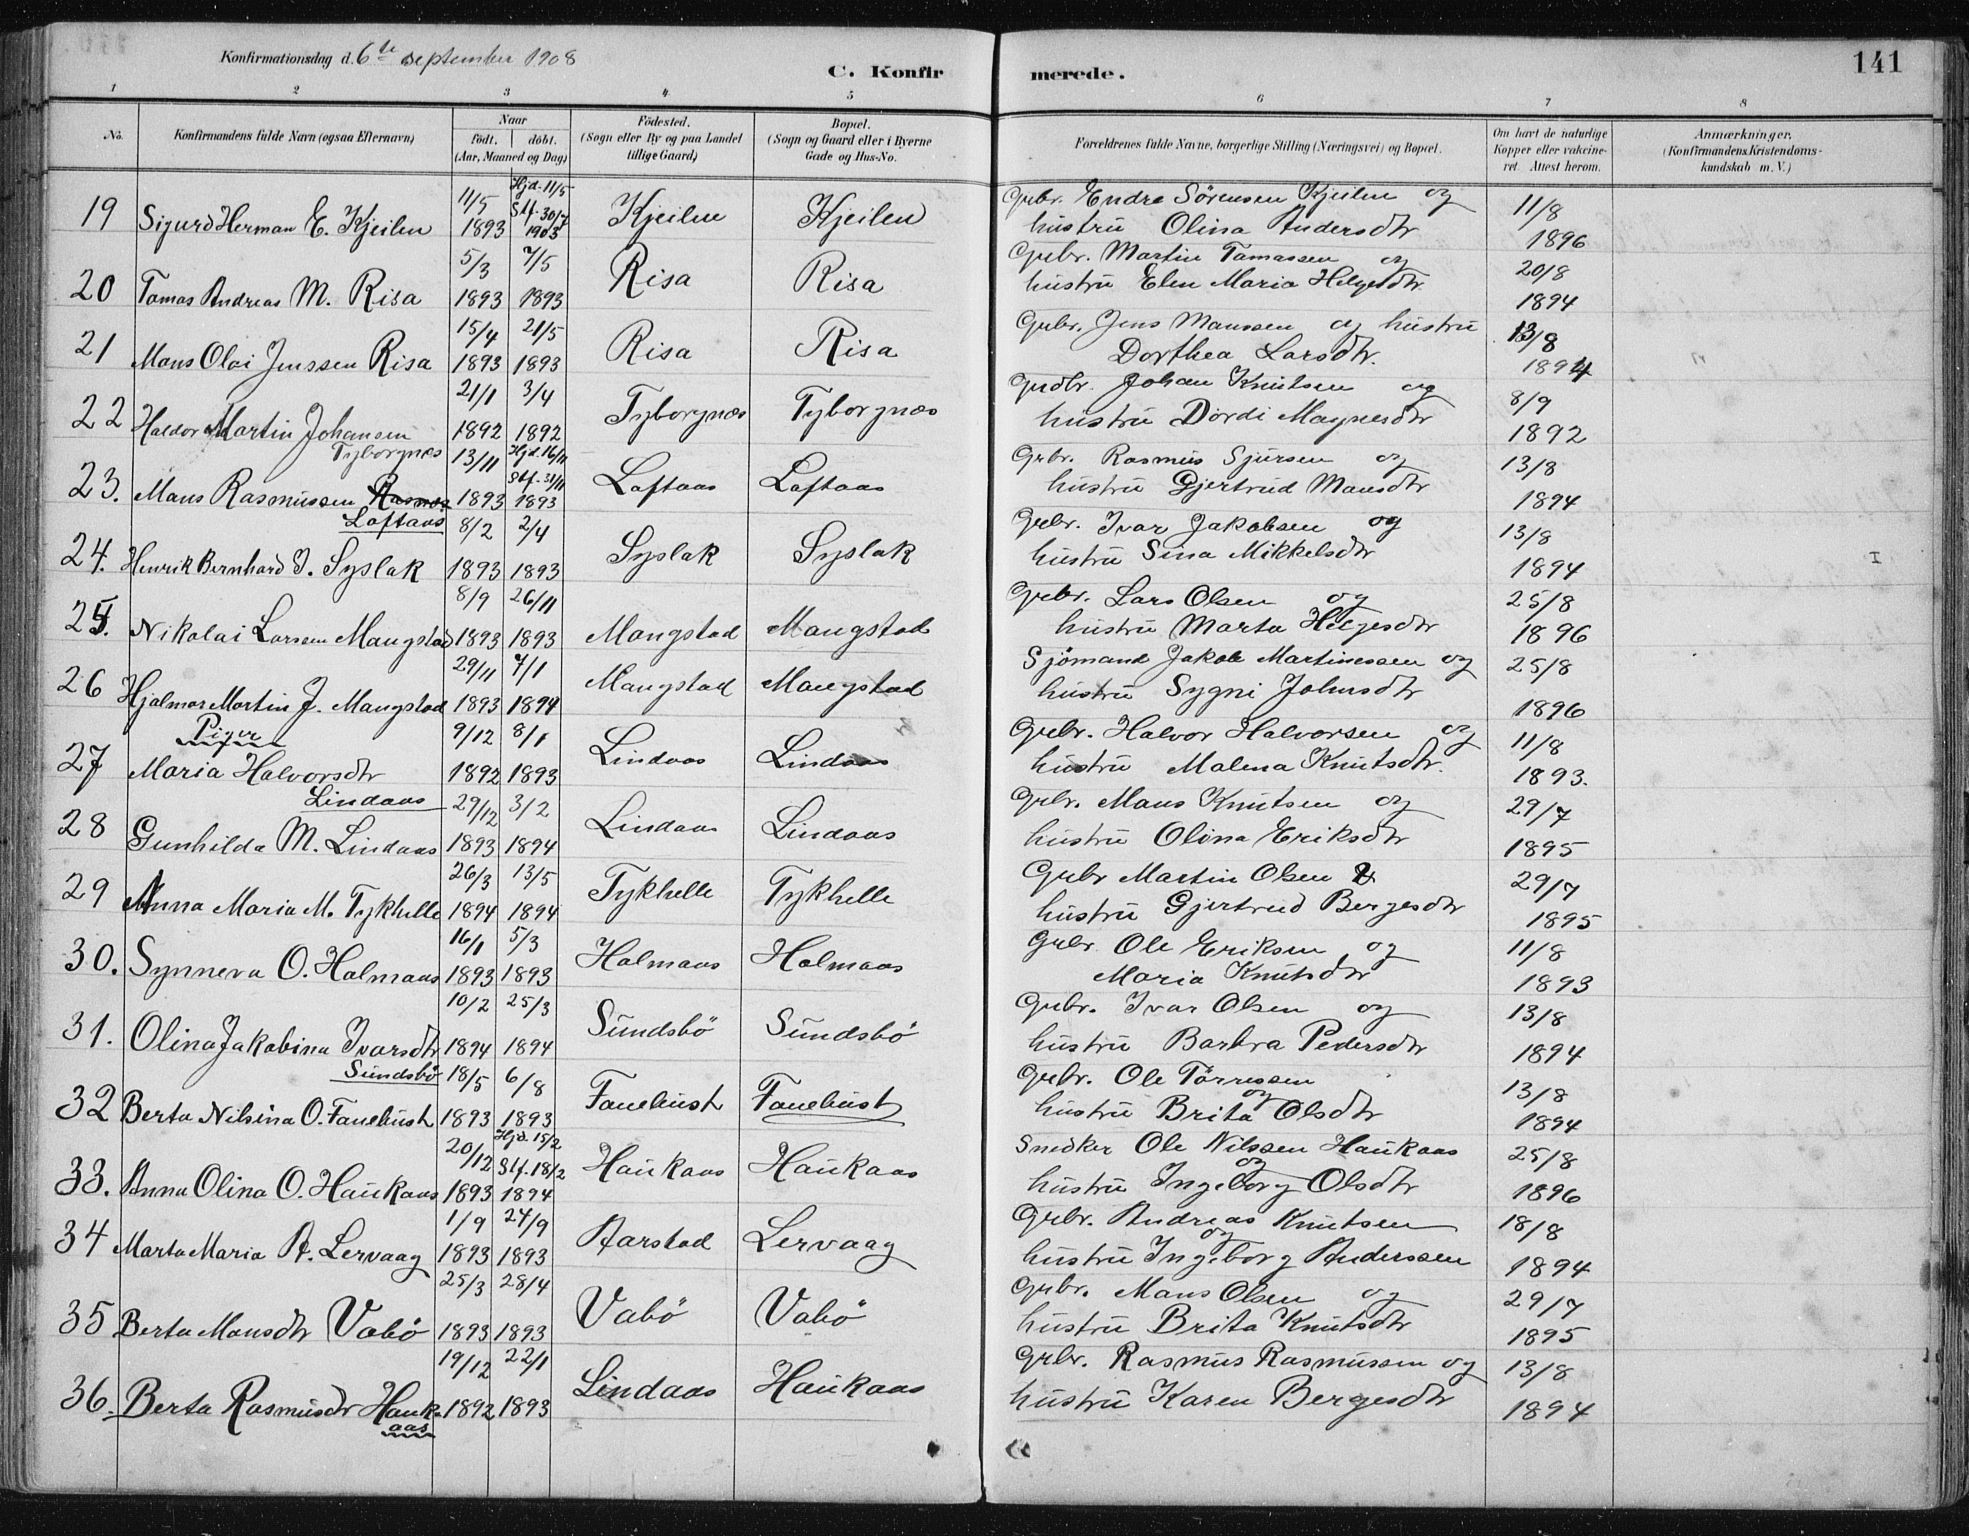 Konfirmationsdag d. 6te September 1908
C. Konfirmerede.
141
1 2 3 4 5 6 7 8
No.
Konfirmandens fulde Navn (ogsaa Efternavn)
Naar
födt. döbt.
(Aar, Maaned og Dag)
Födested.
(Sogn eller By og paa Landet
tillige Gaard)
Bopæl.
(Sogn og Gaard eller i Byerne
Gade og Hus-No.
Forældrenes fulde Navne, borgerlige Stilling (Næringsvei) og Bopæl.
Om havt de naturlige
Kopper eller vakcine-
ret. Attest herom.
Anmærkninger.
(Konfirmandens Kristendoms-
kundskab m. V.)
19 Sigurd Herman E. Kjeilen 11/5 1893 Hjd. 11/5 Stf. 30/7 1903 Kjeilen Kjeilen Grbr. Endre Sörensen Kjeilen og
hustru Olina Andersdtr 11/8 1896
20 Tomas Andreas M. Risa 5/3 1893 7/5 1893 Risa Risa Grbr. Martin Tomassen og
hustru Elen Maria Helgesdtr 20/8 1894
21 Mons Olai Jenssen Risa 15/4 1893 21/5 1893 Risa Risa Grbr. Jens Monssen og hustru
Dorthea Larsdtr. 13/8 1894
22 Haldor Martin Johansen Tyborgnæs 21/1 1892 3/4 1892 Tyborgnæs Tyborgnæs Grdbr. Johan Knutsen og
hustru Dordi Magnesdtr 8/9 1892
23. Mons Rasmussen Loftaas 13/11 1893 Hjd. 16/11 Stf. 31/11 1893 Loftaas Loftaas Grbr. Rasmus Sjursen og
hustru Gjertrud Monsdtr 13/8 1894
24. Henrik Bernhard I. Syslak 8/2 1893 2/4 1893 Syslak Syslak Grbr. Ivar Jakobsen og
hustru Sina Mikkelsdtr 13/8 1894 I
25. Nikolai Larsen Mangstad 8/9 1893 26/11 1893 Mongstad Mongstad Grbr. Lars Olsen og
hustru Marta Helgesdtr 25/8 1896
26 Hjalmar Martin J. Mangstad 29/11 1893 7/1 1894 Mangstad Mangstad Sjömand Jakob Martinessen og
hustru Sygni Johnsdtr 25/8 1896
Piger
27 Maria Halvorsdtr Lindaas 9/12 1892 8/1 1893 Lindaas Lindaas Grbr. Halvor Halvorsen og
hustru Malena Knutsdtr. 11/8 1893.
28 Gunhilda M. Lindaas 29/12 1893 3/2 1894 Lindaas Lindaas Grbr. Mons Knutsen og
hustru Olina Eriksdtr 29/7 1895
29 Anna Maria M. Tykhelle 26/3 1894 13/5 1894 Tykhelle Tykhelle Grbr Martin Olsen &
hustru Gjertrud Bergesdtr 29/7 1895
30. Synneva O. Holmaas 16/1 1893 5/3 1893 Holmaas Holmaas Grbr. Ole Eriksen og
Maria Knutsdtr 11/8 1893
31. Olina Jakobina Ivarsdtr Sundsbö 10/2 1894 25/3 1894 Sundsbö Sundsbö Grbr. Ivar Olsen og
hustru Barbra Pedersdtr 13/8 1894
32 Berta Nilsina O. Fanebust 18/5 1893 6/8 1893 Fanebust Fanebust Grbr. Ole Törressen
og
hustru Brita Olsdtr 13/8 1894
33. Anna Olina O. Haukaas 20/12 1893 Hjd. 15/2 Stf. 18/2 1894 Haukaas Haukaas Snedker Ole Nilssen Haukaas
og
hustru Ingeborg Olsdtr 25/8 1896
34 Marta Maria A. Lervaag 1/9 1893 24/9 1893 Aarstad Lervaag Grbr. Andreas Knutsen
og
hustru Ingeborg Anderssen 18/8 1894
35 Berta Monsdtr Vabö 25/3 1893 28/4 1893 Vabö Vabö Grbr. Mons Olsen og
hustru Brita Knutsdtr 29/7 1895
36. Berta Rasmusdtr Haukaas 19/12 1892 22/1 1893 Lindaas Haukaas Grbr. Rasmus Rasmussen og
hustru Karen Bergesdtr 13/8 1894